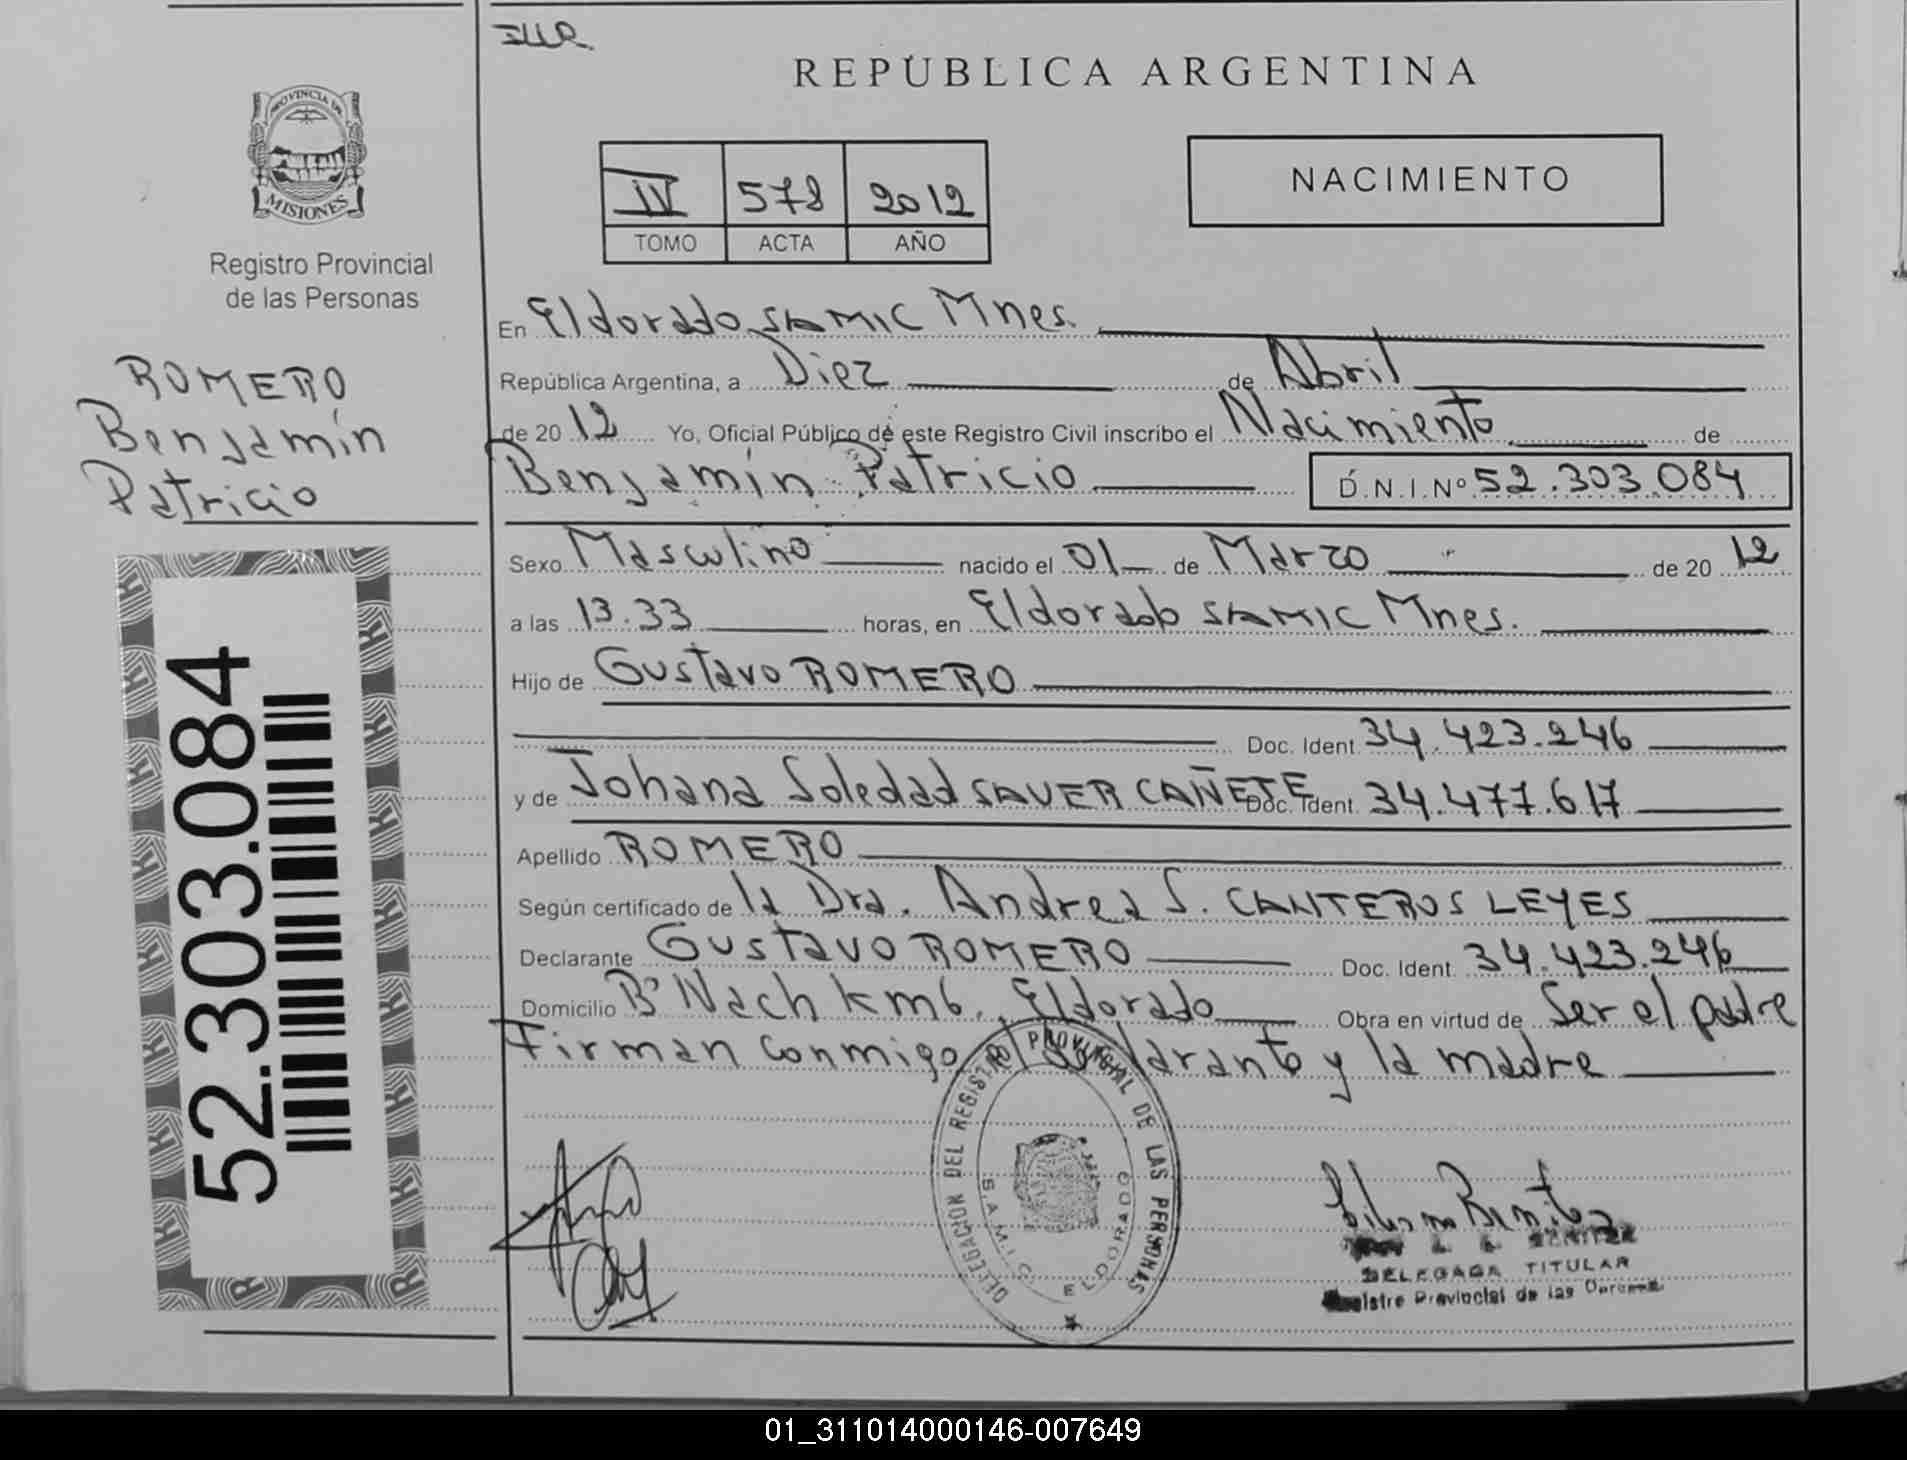 REPÚBLICA ARGENTINA
PROVINCIA DE
MISIONES
Registro Provincial
de las Personas
IV 578 2012
TOMO ACTA AÑO
NACIMIENTO
ROMERO
Benjamín
Patricio
52.303.084
En Eldorado SAMIC Mnes.
República Argentina, a Diez de Abril
de 20 12 Yo, Oficial Público de este Registro Civil inscribo el Nacimiento de
Benjamín Patricio D.N.I.Nº 52.303.084
Sexo Masculino nacido el 01 de Marzo de 20 12
a las 13.33 horas, en Eldorado SAMIC Mnes.
Hijo de Gustavo ROMERO
Doc. Ident. 34.423.246
y de Johana Soledad SAUER CAÑETE Doc. Ident. 34.477.617
Apellido ROMERO
Según certificado de la Dra. Andrea S. CANTEROS LEYES
Declarante Gustavo ROMERO Doc. Ident. 34.423.246
Domicilio Bº Nach km 6, Eldorado Obra en virtud de Ser el padre
Firman conmigo y la madre
DELEGACION DEL REGISTRO PROVINCIAL DE LAS PERSONAS
S.A.M.I.C. ELDORADO
BENITEZ
DELEGADA TITULAR
Registro Provincial de las Personas
01_311014000146-007649